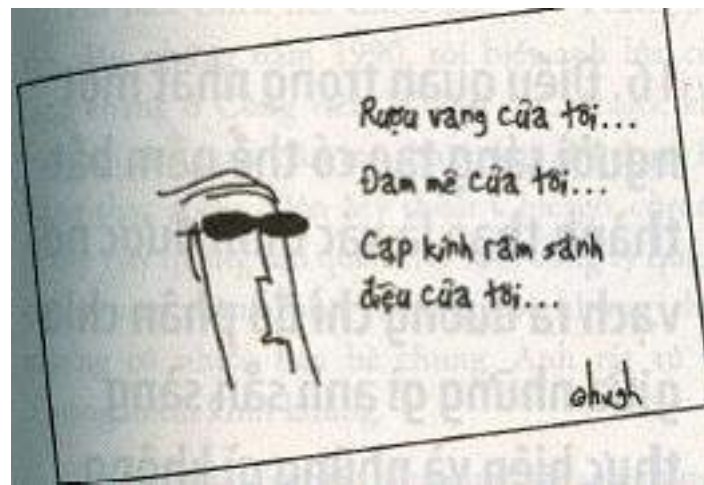 Rượu vang của tôi...
Đam mê của tôi...
Cặp kính râm sành
điệu của tôi...
@hugh